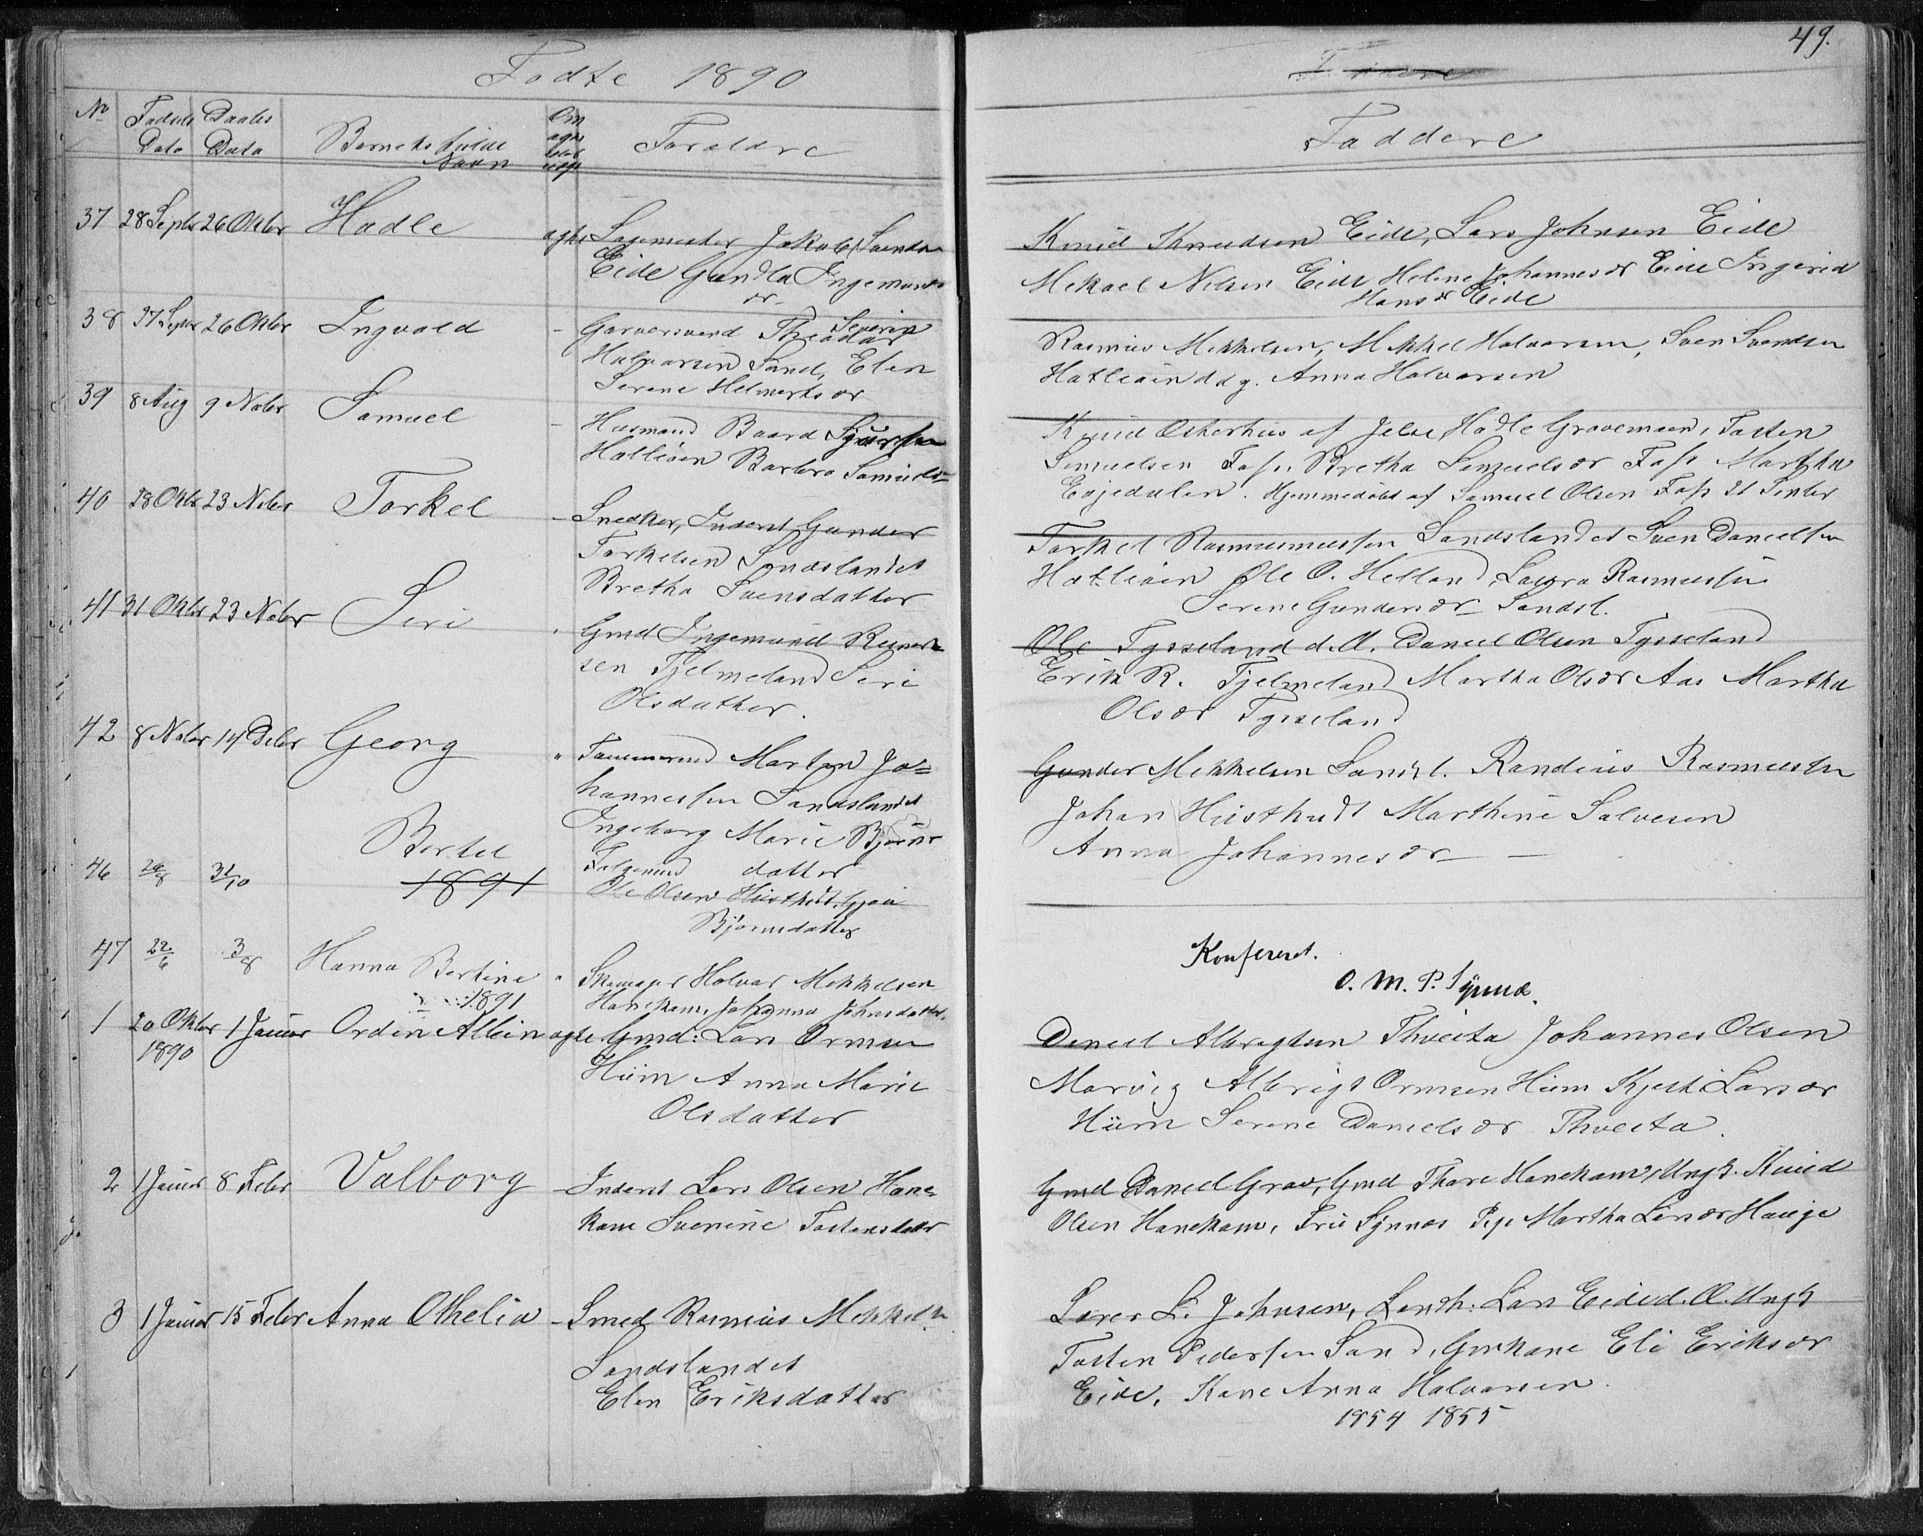 49.
Fødte 1890
Faddere
No
Fødsels Dato
Daabs Dato
Barnets fulde Navn
Om ægte eller uægt
Forældre
Faddere
37 28 Septbr 26 Oktbr Hadle ægte Sagmester Jakob Svends
Eide Gundla Ingemunds
dr
Knud Knudsen Eide, Lars Johnsen Eide
Mekael Nilsen Eide Helene Johannesdr Eide Ingerid
Hansdr Eide
38 27 Septbr 26 Oktbr Ingvald - Garversvend Theodor Severin
Halvorsen Sand, Elen
Serene Helmiksdr
Rasmus Mekkelsen, Mekkel Halvorsen, Sven Svendsen
Hatleøin d.æ.g. Anna Halvorsen
39 8 Aug 9 Nobr Samuel - Husmand Baard Sjursen
Hatleøen Barbro Samuels
Knud Østerhus af Jelse, Hadle Gravemoen, Tosten
Samuelsen Fos, Bretha Samuelsdr Fos Martha
Eojedalen. Hjemmedøbt af Samuel Olsen Fos 21
40 28 Oktbr 23 Nobr Torkel - Snedker, Inderst Gunder
Torkelsen Sandslandet
Bretha Svensdatter
Torkel Rasmussen Sandslandet Sven Danielsen
Hatleøen Ole O. Helland, Laura Rasmussen
Serene Gundersdr Sandsl.
41 31 Oktbr 23 Nobr Siri " Gmd Ingemund Reiner-
sen Tjelmeland Siri
Olsdatter.
Ole Tysseland d.Æ. Daniel Olsen Tysseland
Erik R. Tjelmeland Martha Olsdr Aas Martha
Olsdr Tysseland
42 8 Nobr 14 Debr Georg " Tømmermd Morten Jo=
hannessen Sandslandet
Ingeborg Marie Bjørns-
datter
Gunder Mekkelsen Sandsl. Randius Rasmussen
Johan Hustheidt Marthine Salvesen
Anna Johannesdr —
46 29/8 31/10 Bertel
Ole Olsen Gjøa
Bjørnsdatter
1891
47 22/6 3/8 Hanna Bertine " Skomager Halvor Mekkelsen
Hanekam, Johanna Johnsdatter.
Konfereret.
O. M. P.
1891
1 20 Oktbr 1890 1 Januar Ordin Albin ægte Gmd: Lars Ormsen
Hiim Anna Marie
Olsdatter
Daniel Albregtsen Thveita Johannes Olsen
Marvig Albrigt Ormsen Hiim Kjesti Larsdr
Hiim Serene Danielsdr Thveita.
2 1 Januar 8 Febr Valborg - Inderst Lars Olsen Hane-
kam Svenine Tostensdatr
Gmd Daniel Grov, Gmd Thore Hanekam, Ungk. Knud
Olsen Hanekam, Fru Synnøs Pige Martha Larsdr Hauge
3 1 Januar 15 Febr Anna Othelia - Smed Rasmus Mekkels
Sandslandet
Elen Eriksdatter
Lærer L. Johnsen, Landh: Lars Eide d.Æ. Ungk
Tosten Pedersen Sand, Gmkone Eli Eriksdr
Eide, Kone Anna Halvorsen.
1954 1855